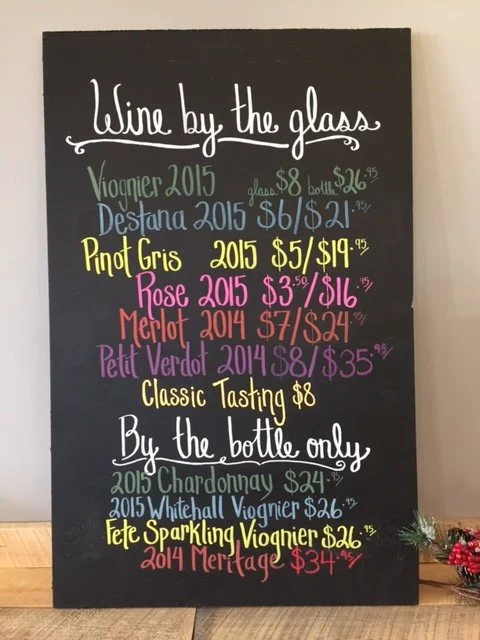 Wine by the glass
Viognier 2015 glass $8 bottle $26.95
Destana 2015 $6/$21.95
Pinot Gris 2015 $5/$19.95
Rose 2015 $3.50/$16.95
Merlot 2014 $7/$24.95
Petit Verdot 2014 $8/$35.95
Classic Tasting $8
By the bottle only
2015 Chardonnay $24.95
2015 Whitehall Viognier $26.95
Fete Sparkling Viognier $26.95
2014 Meritage $34.95